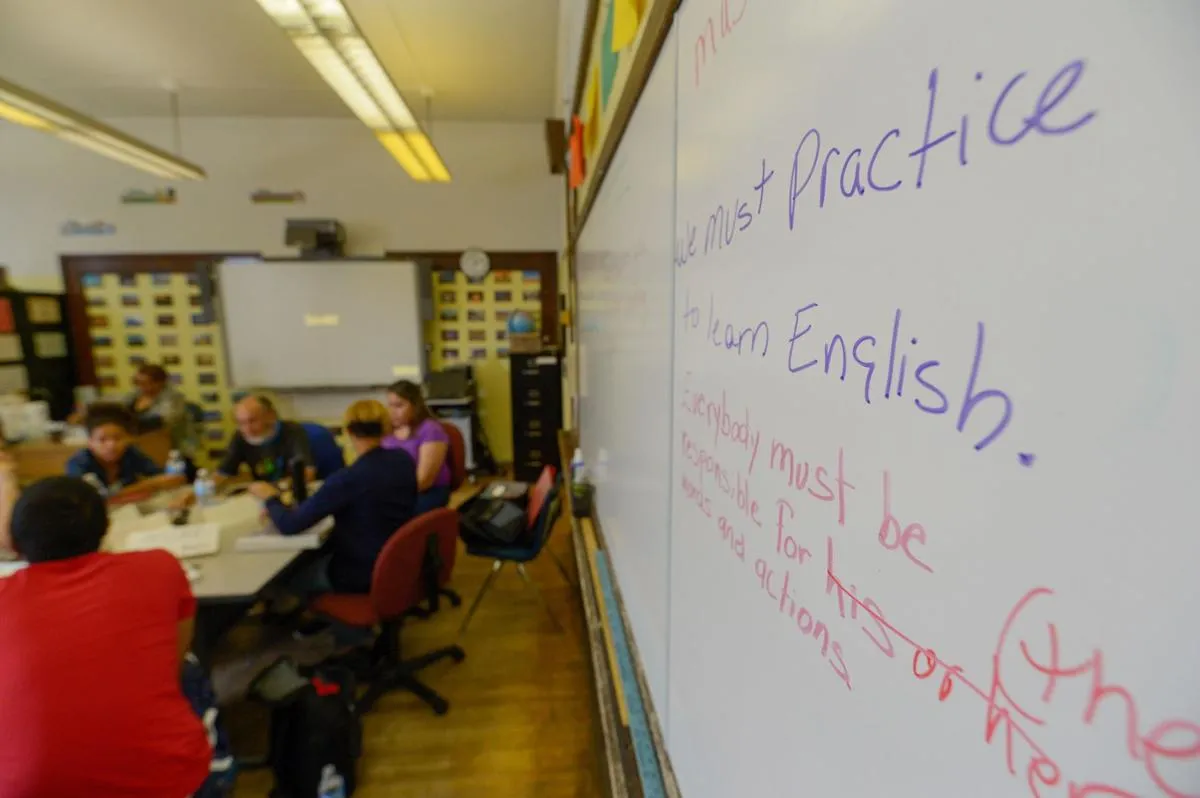 mus
we must Practice
to learn English.
Everybody must be
responsible for his or her (the
words and actions